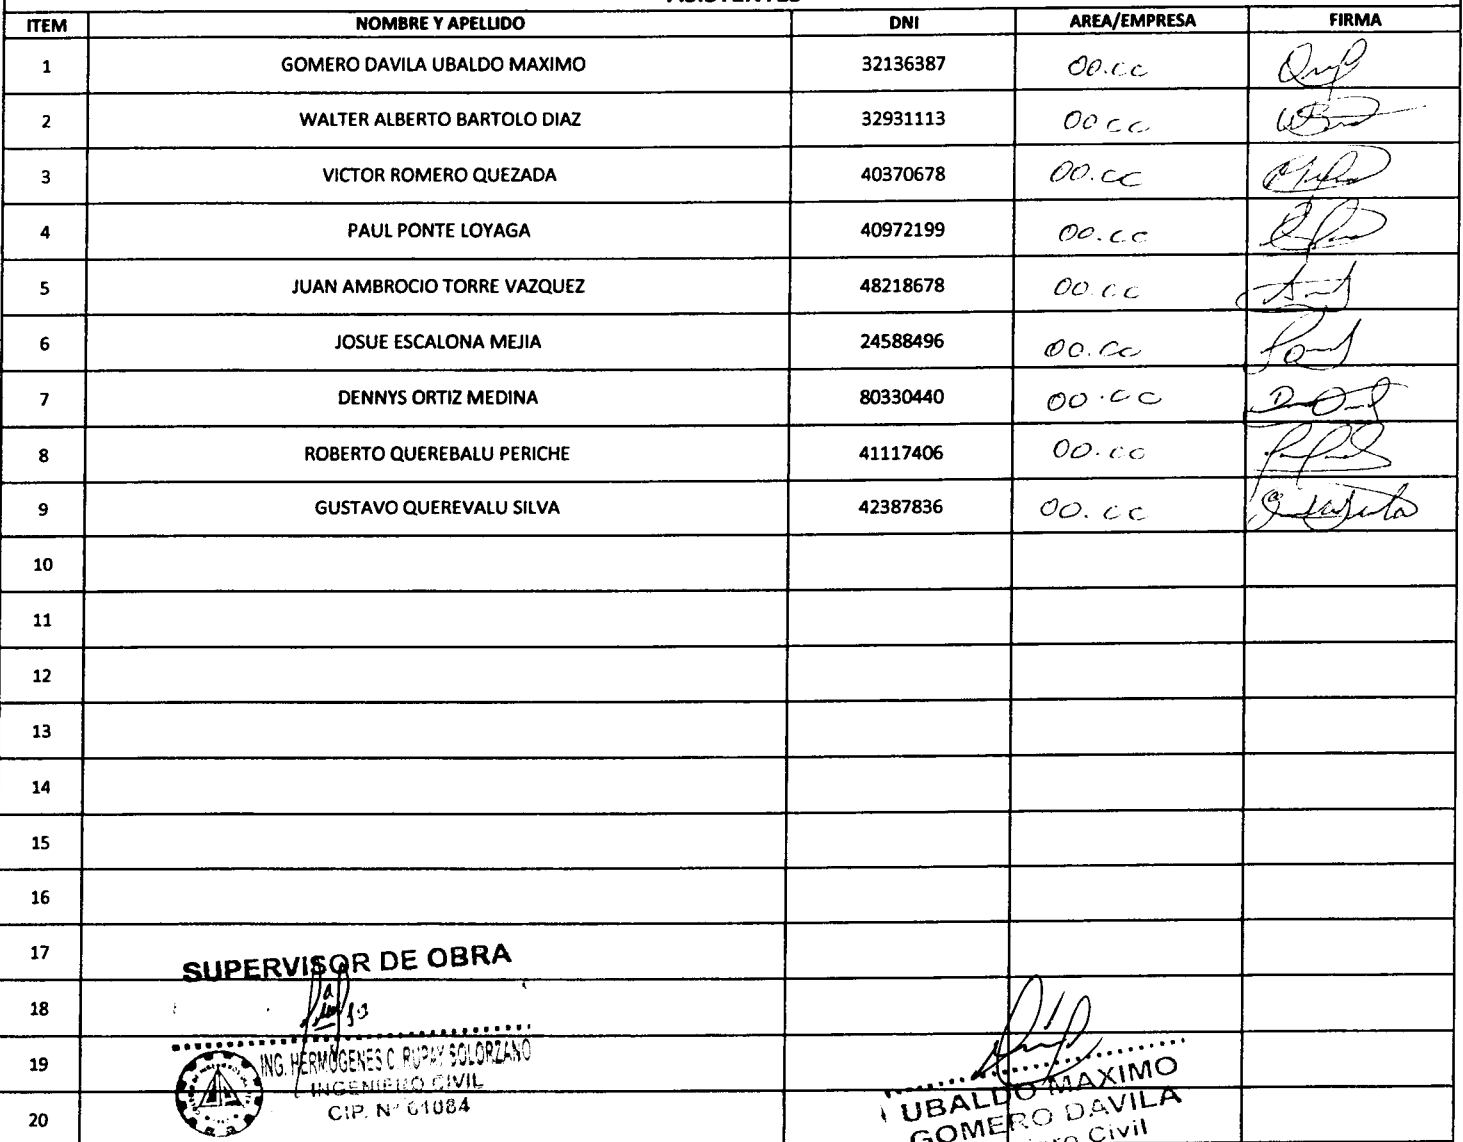 ASISTENTES
ITEM NOMBRE Y APELLIDO DNI AREA/EMPRESA FIRMA
1 GOMERO DAVILA UBALDO MAXIMO 32136387 OO.CC
2 WALTER ALBERTO BARTOLO DIAZ 32931113 OO CC
3 VICTOR ROMERO QUEZADA 40370678 OO.CC
4 PAUL PONTE LOYAGA 40972199 OO.CC
5 JUAN AMBROCIO TORRE VAZQUEZ 48218678 OO.CC
6 JOSUE ESCALONA MEJIA 24588496 OO.CC
7 DENNYS ORTIZ MEDINA 80330440 OO.CC
8 ROBERTO QUEREBALU PERICHE 41117406 OO.CC
9 GUSTAVO QUEREVALU SILVA 42387836 OO.CC
10
11
12
13
14
15
16
17
SUPERVISOR DE OBRA
18
19
ING. HERMOGENES C. RUPAY SOLORZANO
INGENIERO CIVIL
CIP. N° 61084
20
UBALDO MAXIMO
GOMERO DAVILA
Civil